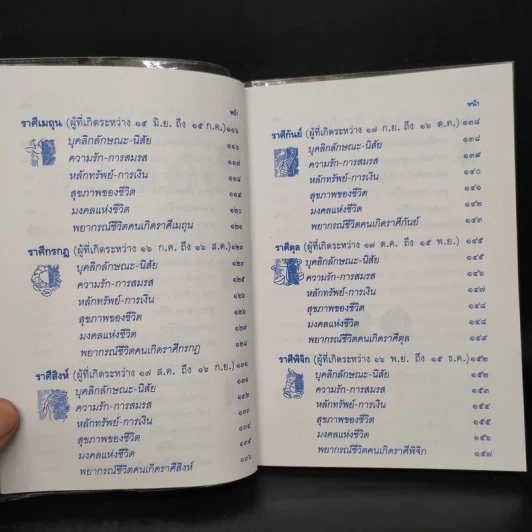 หน้า
ราศีเมถุน (ผู้ที่เกิดระหว่าง ๑๕ มิ.ย. ถึง ๑๕ ก.ค.) ๑๑๖
บุคลิกลักษณะ-นิสัย ๑๑๖
ความรัก-การสมรส ๑๑๗
หลักทรัพย์-การเงิน ๑๑๘
สุขภาพของชีวิต ๑๑๙
มงคลแห่งชีวิต ๑๒๐
พยากรณ์ชีวิตคนเกิดราศีเมถุน ๑๒๑
ราศีกรกฎ (ผู้ที่เกิดระหว่าง ๑๖ ก.ค. ถึง ๑๖ ส.ค.) ๑๒๓
บุคลิกลักษณะ-นิสัย ๑๒๓
ความรัก-การสมรส
หลักทรัพย์-การเงิน ๑๒๕
สุขภาพของชีวิต ๑๒๖
มงคลแห่งชีวิต ๑๒๗
พยากรณ์ชีวิตคนเกิดราศีกรกฎ ๑๒๘
ราศีสิงห์ (ผู้ที่เกิดระหว่าง ๑๗ ส.ค. ถึง ๑๖ ก.ย.) ๑๓๑
บุคลิกลักษณะ-นิสัย ๑๓๑
ความรัก-การสมรส
หลักทรัพย์-การเงิน ๑๓๓
สุขภาพของชีวิต ๑๓๔
มงคลแห่งชีวิต ๑๓๕
พยากรณ์ชีวิตคนเกิดราศีสิงห์ ๑๓๖
หน้า
ราศีกันย์ (ผู้ที่เกิดระหว่าง ๑๗ ก.ย. ถึง ๑๖ ต.ค.) ๑๓๘
บุคลิกลักษณะ-นิสัย ๑๓๘
ความรัก-การสมรส ๑๓๙
หลักทรัพย์-การเงิน ๑๔๐
สุขภาพของชีวิต ๑๔๑
มงคลแห่งชีวิต ๑๔๒
พยากรณ์ชีวิตคนเกิดราศีกันย์ ๑๔๓
ราศีตุล (ผู้ที่เกิดระหว่าง ๑๗ ต.ค. ถึง ๑๕ พ.ย.) ๑๔๕
บุคลิกลักษณะ-นิสัย ๑๔๕
ความรัก-การสมรส ๑๔๖
หลักทรัพย์-การเงิน ๑๔๗
สุขภาพของชีวิต ๑๔๘
มงคลแห่งชีวิต ๑๔๙
พยากรณ์ชีวิตคนเกิดราศีตุล
ราศีพิจิก (ผู้ที่เกิดระหว่าง ๑๖ พ.ย. ถึง ๑๕ ธ.ค.) ๑๕๒
บุคลิกลักษณะ-นิสัย ๑๕๒
ความรัก-การสมรส ๑๕๓
หลักทรัพย์-การเงิน ๑๕๔
สุขภาพของชีวิต ๑๕๕
มงคลแห่งชีวิต ๑๕๖
พยากรณ์ชีวิตคนเกิดราศีพิจิก ๑๕๗